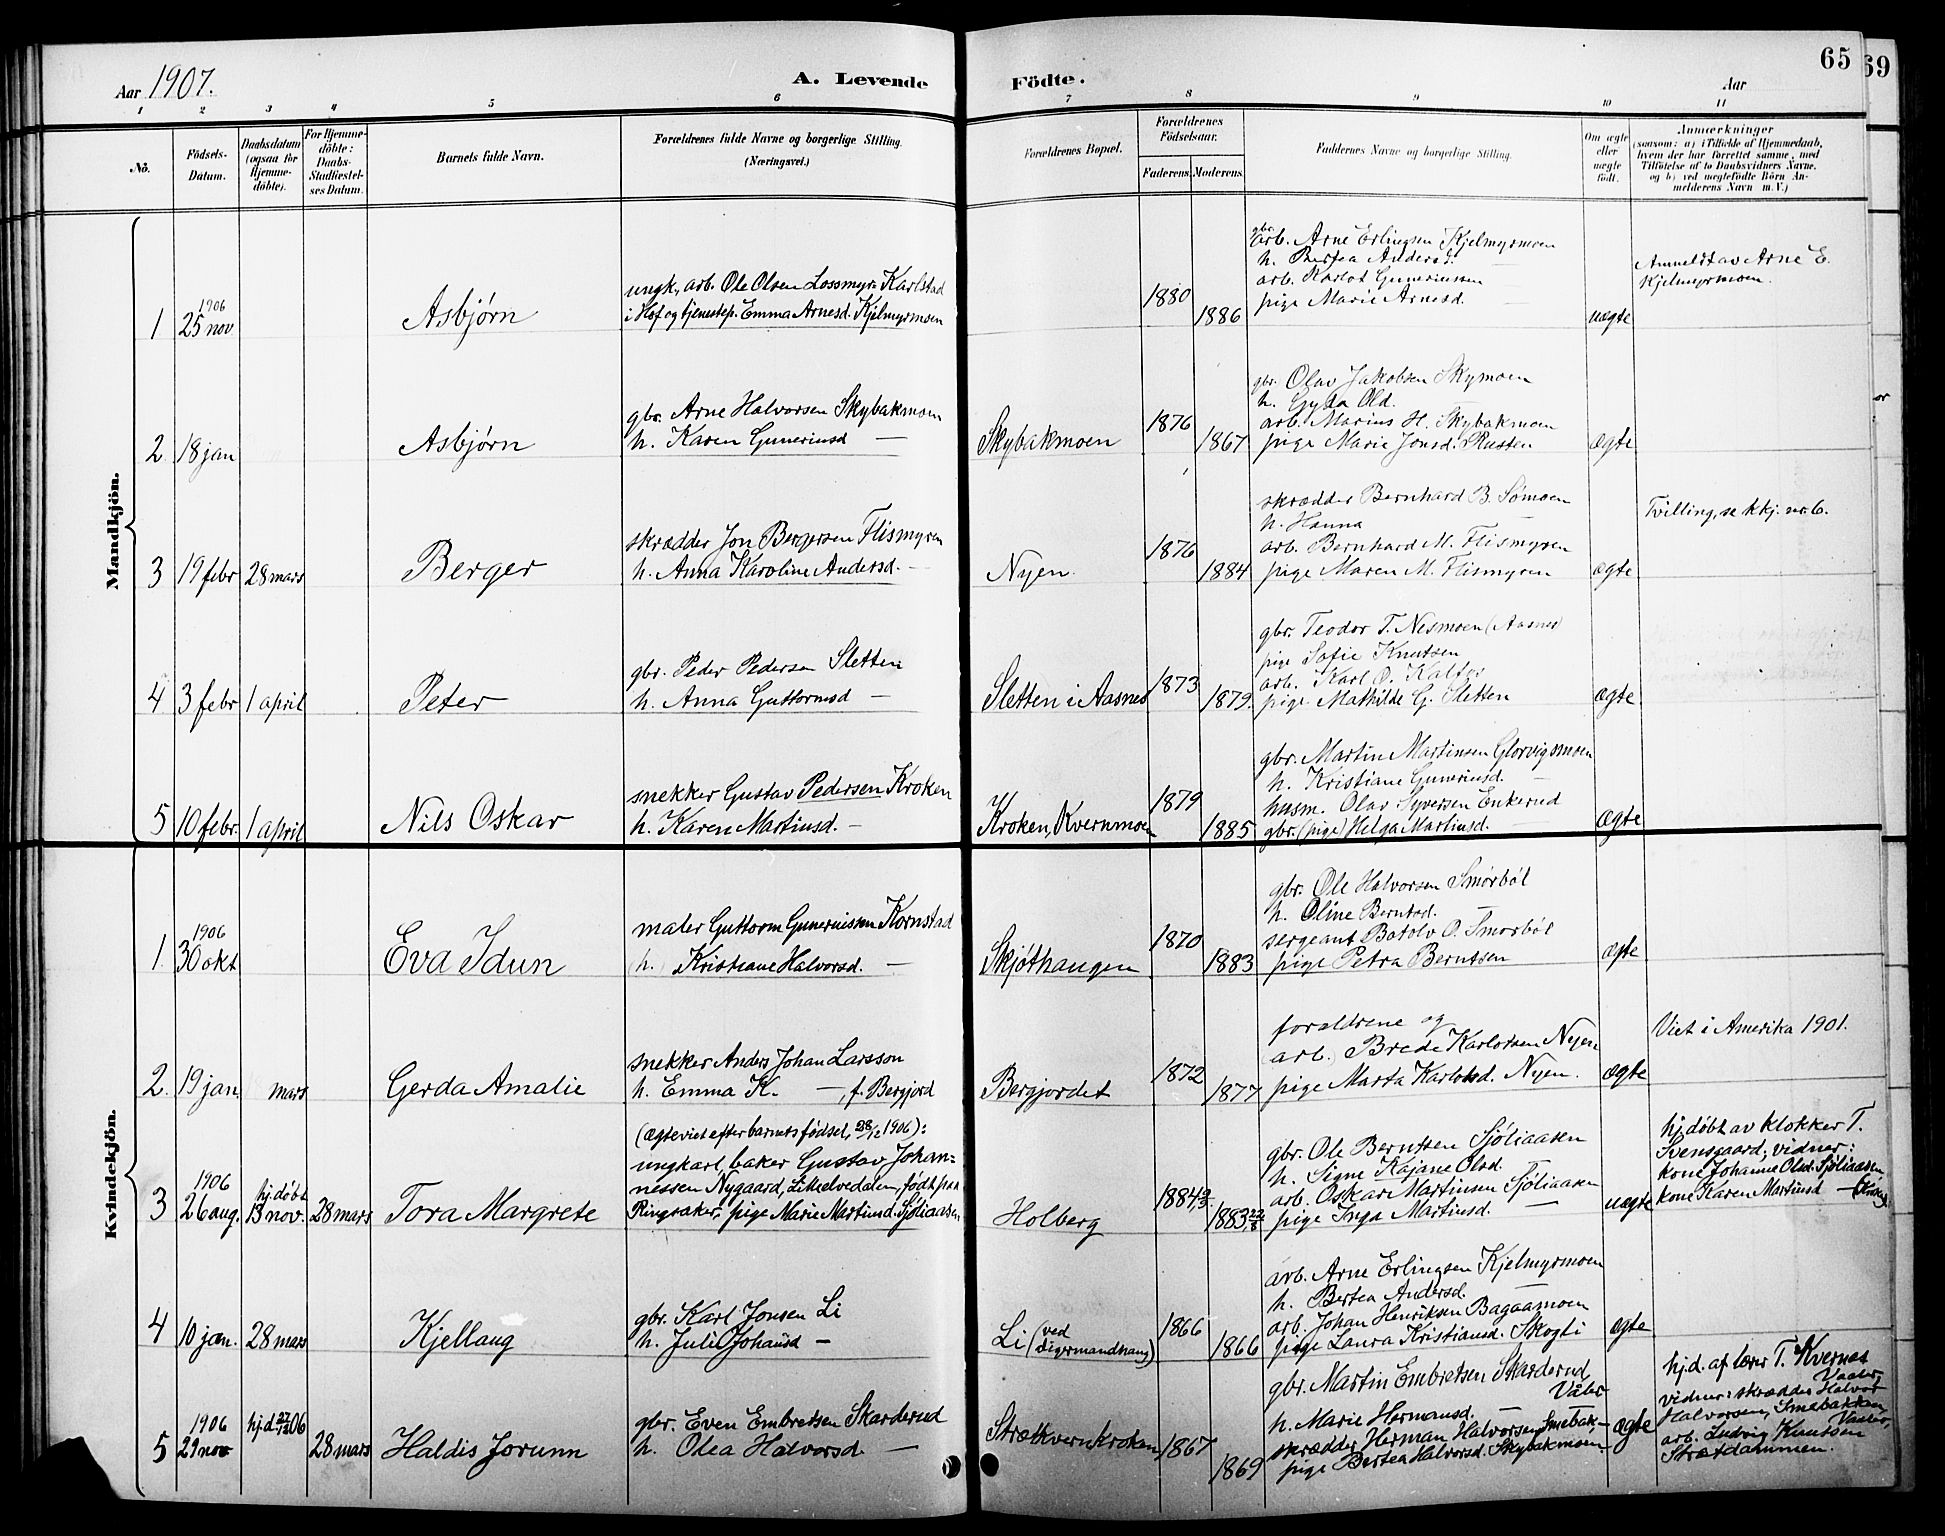 Aar 1907.
A. Levende
Födte.
Aar
65
69
1 2 3 4 5 6 7 8 9 10 11
Nö.
Födsels-
Datum.
Daabsdatum
(ogsaa för
Hjemme-
döbte).
For Hjemme-
döbte:
Daabs-
Stadfæstel-
ses Datum.
Barnets fulde Navn.
Forældrenes fulde Navne og borgerlige Stilling.
(Næringsvei.)
Forældrenes Bopæl.
Forældrenes
Födselsaar.
Faderens. Moderens.
Faddernes Navne og borgerlige Stilling.
Om ægte
eller
uægte
födt.
Anmærkninger
(saasom: a) i Tilfælde af Hjemmedaab,
hvem der har forrettet samme, med
Tilföielse af to Daabsvidners Navne,
og b) ved uægtefödte Börn An-
melderens Navn m.V.)
Mandkjön.
1
1906
25 nov
Asbjørn
ungk., arb. Ole Olsen Lossmyr, Karlstad
i Hof og tjenestep. Emma Arnesd. Kjelmyrmoen
1880
1886
gbr.
arb. Arne Erlingsen Kjelmyrmoen
h. Bertea Andersd. —
arb. Karlot Gunerinssen
pige Marie Arnesd. —
uægte
Anmeldt av Arne E.
Kjelmyrmoen.
2
18 jan
Asbjørn
gbr. Arne Halvorsen Skybakmoen
h. Karen Gunerinsd —
Skybakmoen
1876
1867
gbr. Olav Jakobsen Skymoen
h. Gyda Old.
arb. Marius H. Skybakmoen
pige Marie Jonsd. Rusten
ægte
3
19 febr
28 mars
Berger
skrædder Jon Bergersen Flismyren
h. Anna Karoline Andersd. —
Nyen.
1876
1884
skrædder Bernhard B. Sømoen
h. Hanna
arb. Bernhard M. Flismyren
pige Maren M. Flismyren
ægte
Tvilling, se kkj. nr. 6.
4
3 febr
1 april
Peter
gbr. Peder Pedersen Sletten
h. Anna Guttormsd —
Sletten i Aasnes
1873
1879.
gbr. Teodor T. Nesmoen (Aasnes)
pige Sofie Knutsen
arb. Karl O.
pige Mathilde G. Sletten
ægte
5
10 febr.
1 april
Nils Oskar
snekker Gustav Pedersen Kroken
h. Karen Martinsd. —
Kroken, Kvernmoen
1879
1885
gbr. Martin Martinsen Glorvigsmoen
h. Kristiane Gunerinsd. —
husm. Olav Syversen Enkerud
gbr. (pige) Helga Martinsd. —
ægte
Kvindekjön.
1.
1906
30 okt
Eva Idun
maler Guttorm Gunerinssen Kornstad
(h.) Kristiane Halvorsd. —
Skjøthaugen
1870
1883
gbr. Ole Halvorsen Smørbøl
h. Oline Berntsd. —
sergeant Botolv O. Smørbøl
pige Petra Berntsen
ægte
2.
19 jan.
mars
Gerda Amalie
snekker Anders Johan Larsson
h. Emma K. —, f. Bergjord
Bergjordet
1872
1877
forældrene og
(arb.) Brede Karlotsen Nyen
pige Marta Karlotsd. Nyen.
ægte
Viet i Amerika 1901.
3
1906
26 aug.
hj.døbt
13 nov.
28 mars
Tora Margrete
(Ægteviet efter barnets fødsel, 28/12 1906):
ungkarl, baker Gustav Johan-
nessen Nygaard, Littelvedalen, født paa
Ringsaker, pige Marie Martinsd. Sjøliaasen
Holberg
1884,
1883, 22/8
gbr. Ole Berntsen Sjøliaasen
h. Signe Kajane Olsd. —
arb. Oskar Martinsen Sjøliaasen
pige Inga Martinsd. —
uægte
hj.døbt av klokker T.
Svensgaard; vidner:
kone Johanne Olsd. Sjøliaasen,
kone Karen Martinsd —
4
10 jan.
28 mars
Kjellaug
gbr. Karl Jonsen Li
h. Juli Johansd —
Li (ved
Digermandhaug)
1866
1866
arb. Arne Erlingsen Kjelmyrmoen
h. Bertea Andersd. —
arb. Johan Henriksen Bagaamoen
pige Laura Kristiansd. Skogli
ægte
5
1906
29 nov
hj.d. 27/12 06
28 mars
Haldis Jorunn
gbr. Even Embretsen Skarderud
h. Olea Halvorsd. —
Strætkvernkroken
1867
1869
gbr. Martin Embretsen Skarderud
Våler
h. Marie Hermansd. —
skrædder Herman Halvorsen Smebak-
pige Bertea Halvorsd. Skybakmoen
ægte
hj.d. af lærer T. Kvernes
Vaaler,
vidner: skrædder Halvor
Halvorsen, Smebakken,
Vaaler,
arb. Ludvig Knutsen
Strætdammen.